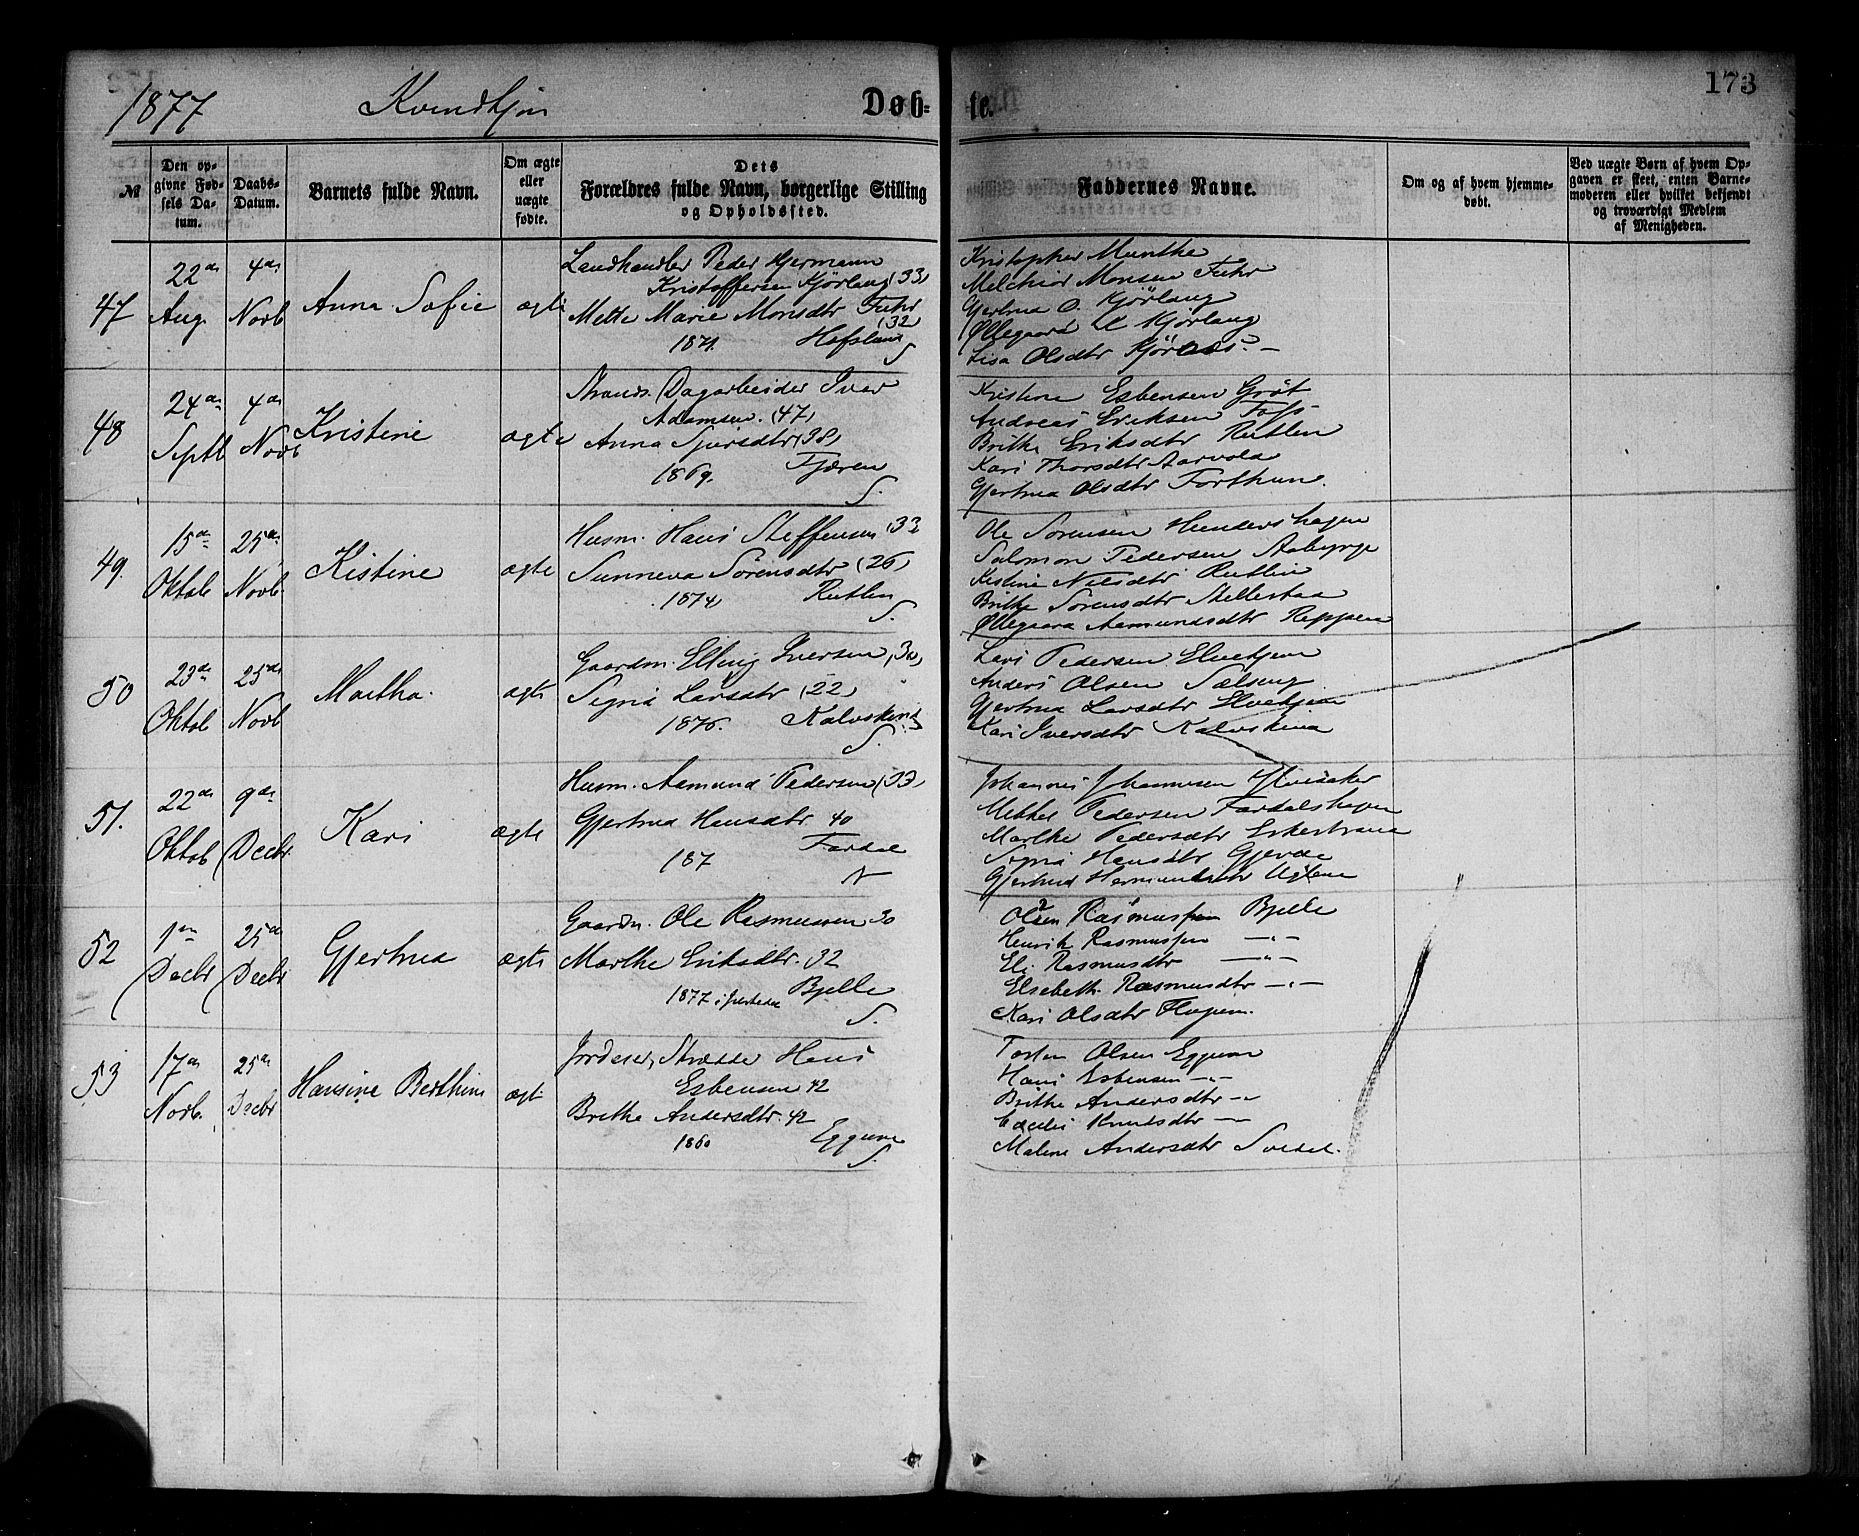 1877 Kvindkjøn Døb-
te. 173
№
Den op-
givne Fød-
sels Da-
tum.
Daabs-
Datum.
Barnets fulde Navn.
Om ægte
eller
uægte
fødte.
Dets
Forældres fulde Navn, borgerlige Stilling
og Opholdssted.
Faddernes Navne.
Om og af hvem hjemme-
døbt.
Ved uægte Børn af hvem Op-
gaven er skeet, enten Barne-
moderen eller hvilket bekjendt
og troværdigt Medlem
af Menigheden.
47
22de
Aug.
4de
Novb
Anna Sofie
ægte
Landhandler Peder Hjermann
Kristoffersen Kjørlaug (33)
Mette Marie Monsdtr Fuhr
(32)
1871. Hafslun
S
Kristopher Munthe
Melchior Monsen Fuhr
Gjertrud O. Kjörlaug
Øllegaard Kjörlaug
Lisa Olsdtr
48
24de
Septb
4de
Novb
Kristine
ægte
Strands. Dagarbeider Iver
Adamsen. (47)
Anna Sjursdtr (38)
1869. Fjæren
S.
Kristen Esbensen Gröt
Andreas Eriksen Foss
Brithe Eriksdtr Rutlin
Kari Thorsdtr Aarvold
Gjertrud Olsdtr Forthun.
49.
15de
Oktob
25de
Novb.
Kistine
ægte
Husm. Hans Steffensen (33
Sunneva Sörensdtr (26)
1874 Rutlin
S.
Ole Sorensen Hundershagen
Salomon Pedersen Aaberge
Kistine Nilsdtr Rutlin
Brithe Sorensdtr
Øllegaard Aamundsdtr Reppen
50
23de
Oktob
25de
Novb
Martha.
ægte
Gaardm. Elling Iversen (30)
Signi Larsdtr (22)
1876. Kalvskind
S.
Lars Pedersen Elvekjem
Anders Olsen Sælseng
Gjertrud Larsdtr Elvekjem
Kari Iversdtr Kalvskind
51.
22de
Oktob
9de
Decbr.
Kari
ægte
Husm. Aamund Pedersen (33)
Gjertrud Hansdtr 40
187 Fardal
N
Johannes Johannesen
Mikkel Pedersen Fardalshagen
Marthe Pedersdtr Eskestrand
Signi Hansdtr Gjerde
Gjertrud
52
1ste
Decbr
25de
Decbr
Gjertrud
ægte
Gaardm. Ole Rasmussen 30
Marthe Eriksdtr. 32
1877 Bjelle
S.
Rasmussen Bjelle
Henrik Rasmussen —"—
Eli Rasmusdtr —"—
Elsebeth Rasmusdtr —"—
Kari Olsdtr
53
17de
Novb.
25de
Decbr
Hansine Berthine
ægte
Jordeier, Skrædder Hans
Esbensen 42
Brithe Andersdtr. 42
1860 Eggum
S.
Torsten Olsen Eggum
Hans Esbensen —"—
Brithe Andersdtr —"—
Cecilie Knudsdtr —"—
Malene Andersdtr